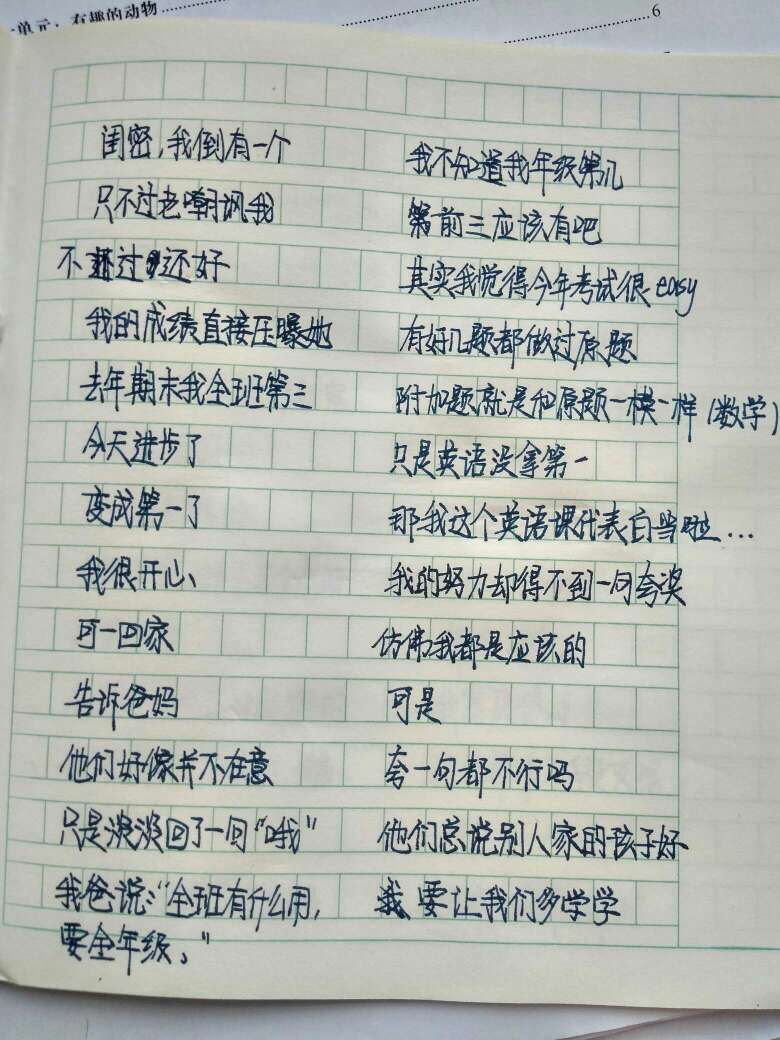 单元：有趣的动物 6
闺密,我倒有一个
只不过老嘲讽我
不过还好
我的成绩直接压曝她
去年期末我全班第三
今天进步了
变成第一了
我很开心、
可一回家
告诉爸妈
他们好像并不在意
只是淡淡回了一回“哦”
我爸说:“全班有什么用,
要全年级。”
我不知道我年级第几
第前三应该有吧
其实我觉得今年考试很easy
有好几题都做过原题
附加题就是和原题一模一样(数学)
只是英语没拿第一
那我这个英语课代表白当啦...
我的努力却得不到一句夸奖
仿佛我都是应该的
可是
夸一句都不行吗
他们总说别人家的孩子好
要让我们多学学